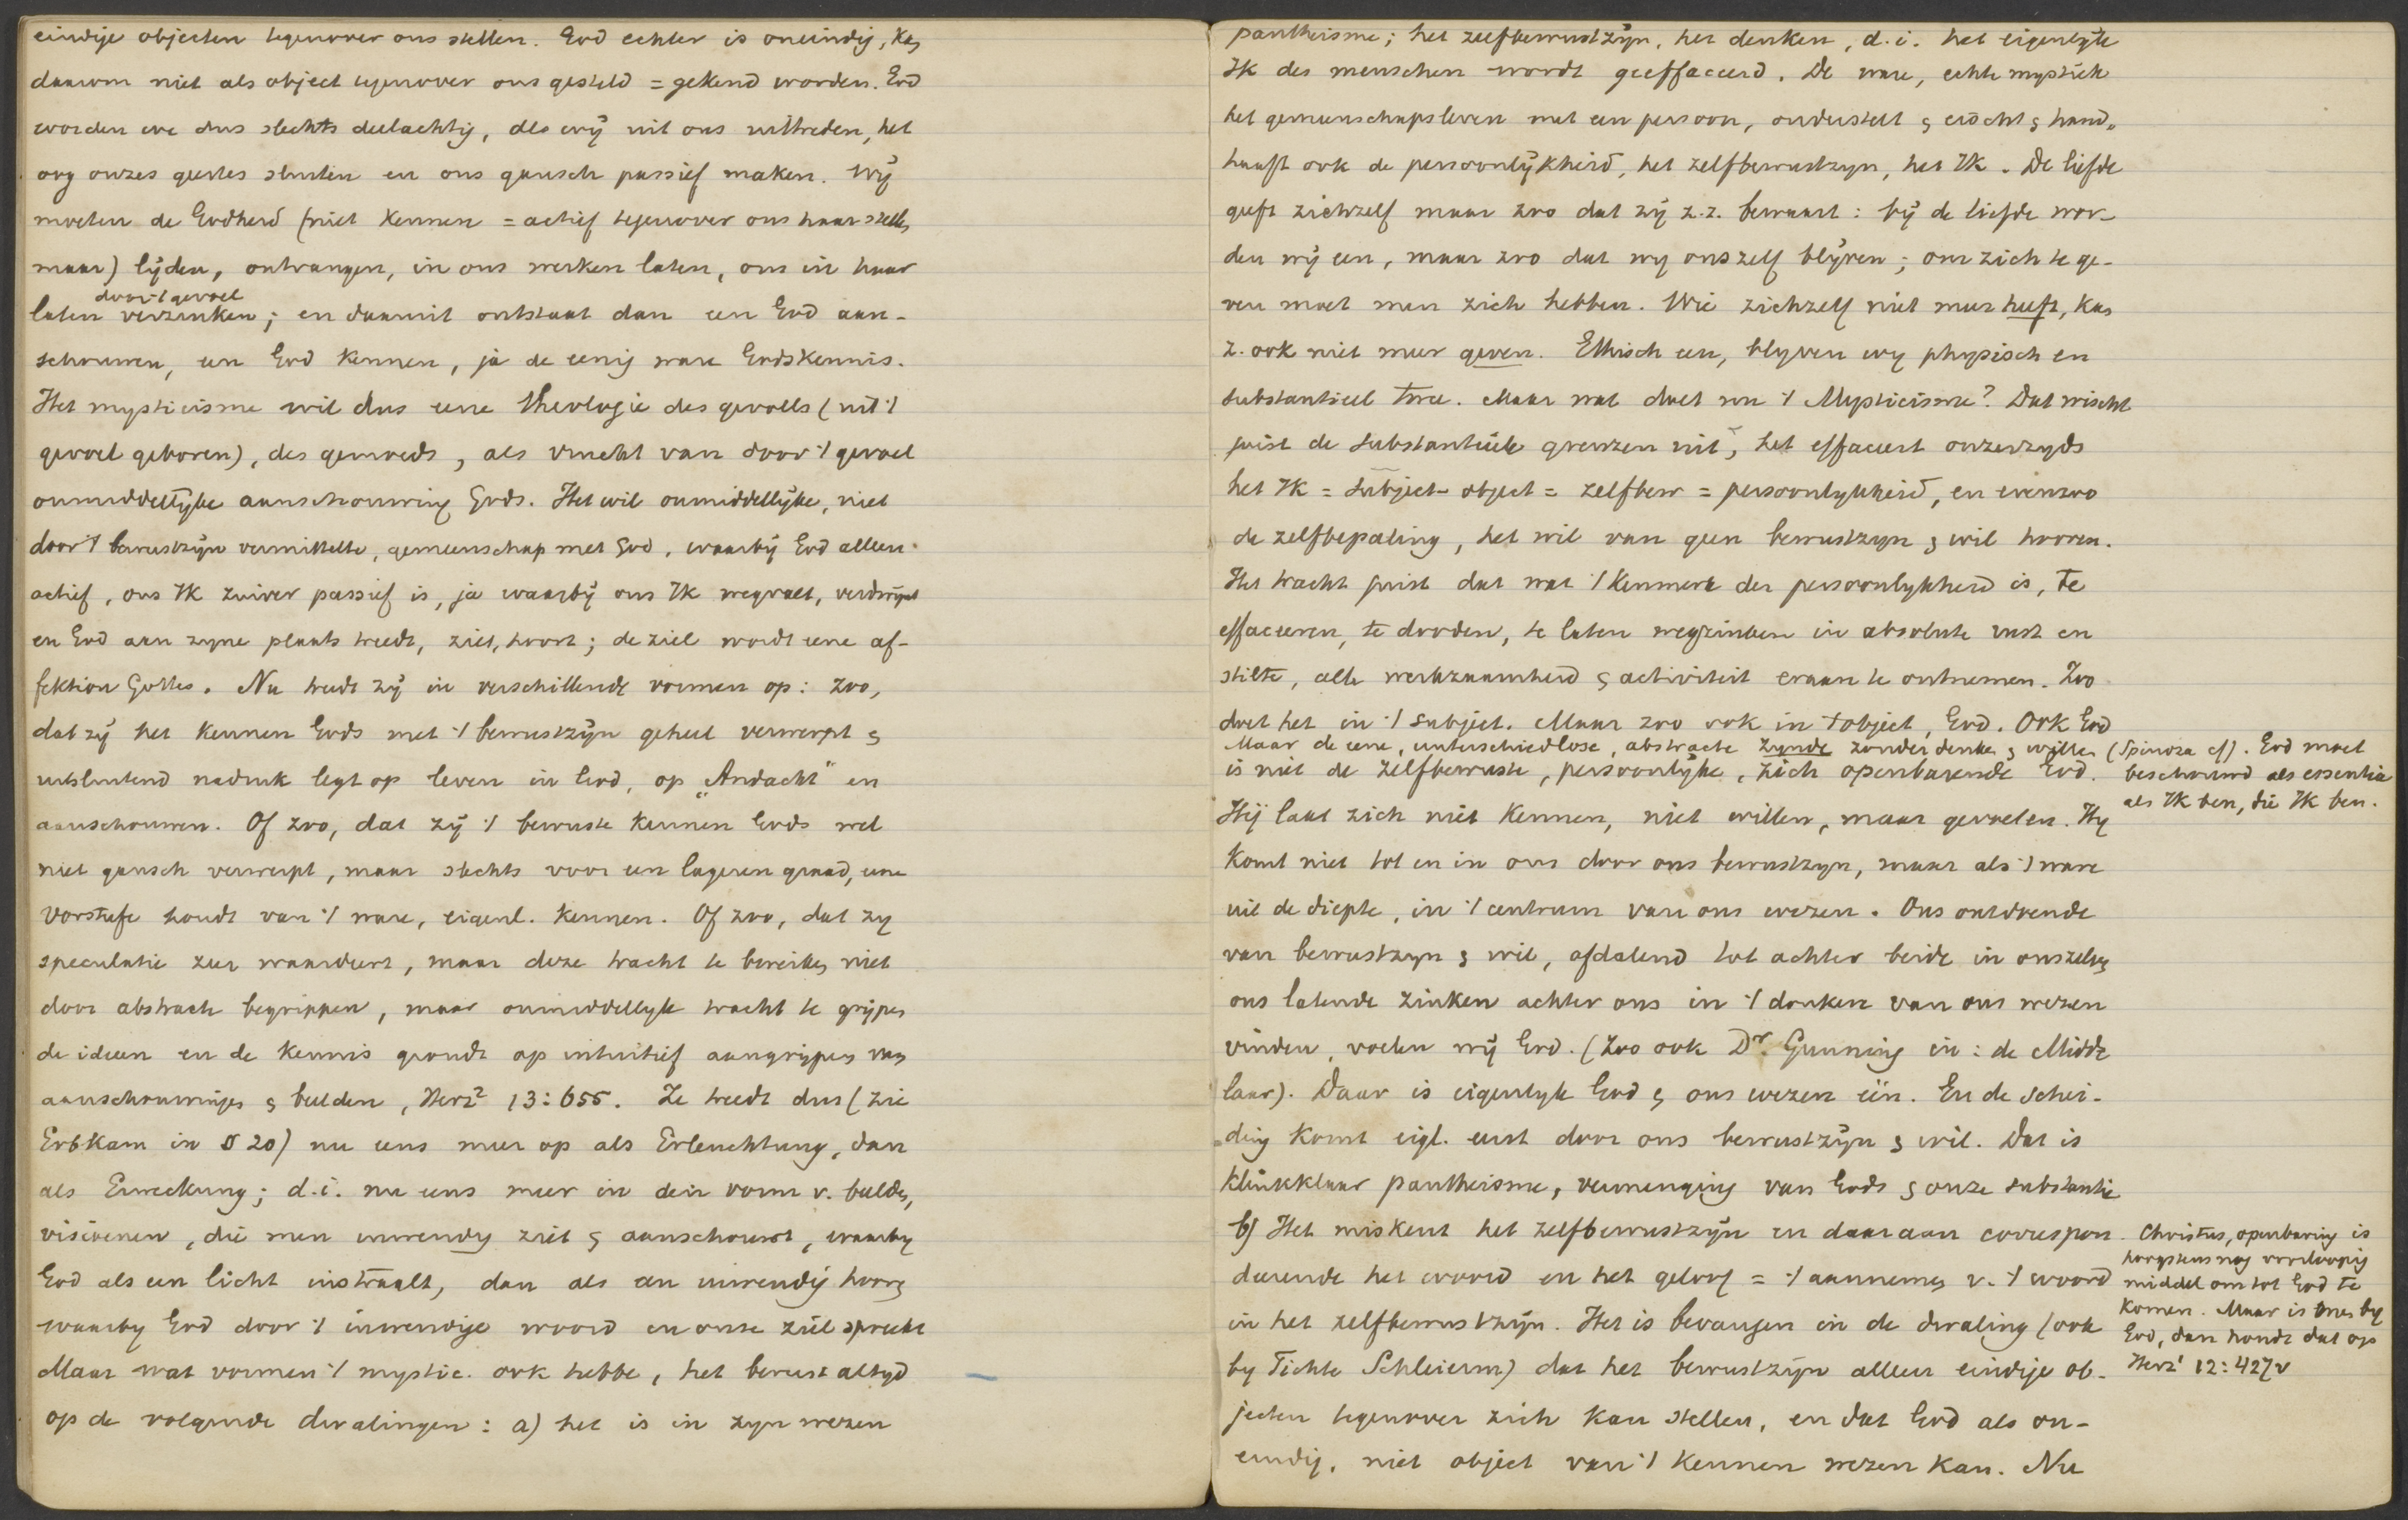 eindige objecten tegenover ons stellen. God echter is oneindig, kan
daarom niet als object tegenover ons gesteld = gekend worden. God
worden we dus slechts deelachtig, als wij uit ons uittreden, het
oog onzes geestes sluiten en ons gansch passief maken. Wij
moeten de Godheid (niet kennen = actief tegenover ons haar stellen
maar) lijden, ontvangen, in ons werken laten, ons in haar
door 't gevoel
laten verzinken; en daaruit ontstaat dan een God aan-
schouwen, een God kennen, ja de eenig ware Godskennis.
Het mysticisme wil dus eene theologie des gevoels (uit 't
gevoel geboren), des gemoeds, als vrucht van door 't gevoel
onmiddellijke aanschouwing Gods. Het wil onmiddellijke, niet
door 't bewustzijn vermittelte, gemeenschap met God, waarbij God alleen
actief, ons Ik zuiver passief is, ja waarbij ons Ik wegvalt, verdwijnt
en God aan zyne plaats treedt, ziet, hoort; de ziel wordt eene af-
fektion Gottes. Nu treedt zij in verschillende vormen op: zoo,
dat zij het kennen Gods met 't bewustzijn geheel verwerpt &
uitsluitend nadruk legt op leven in God, op „Andacht" en
aanschouwen. Of zoo, dat zij 't bewuste kennen Gods wel
niet gansch verwerpt, maar slechts voor een lageren graad, eene
Vorstufe houdt van 't ware, eigenl. kennen. Of zoo, dat zy
speculatie zeer waardeert, maar deze tracht te bereiken niet
door abstracte begrippen, maar onmiddellyk tracht te grijpen
de ideen en de kennis grondt op intuitief aangrijpen van
aanschouwingen & beelden, Herz² 13:655. Ze treedt dus (zie
Erbkam in § 20) nu eens meer op als Erleuchtung, dan
als Erweckung; d.i. nu eens meer in den vorm v. beelden,
visioenen, die men inwendig ziet & aanschouwt, waarby
God als een licht instraalt, dan als een inwendig hooren
waarby God door 't inwendige woord in onze ziel spreekt
Maar wat vormen 't mystic. ook hebbe, het berust altyd
op de volgende dwalingen: a) het is in zyn wezen
pantheisme; het zelfbewustzijn, het denken, d.i. het eigenlijke
Ik des menschen wordt geeffaceerd. De ware, echte mystiek
het gemeenschapsleven met een persoon, onderstelt & eischt & hand-
haaft ook de persoonlijkheid, het zelfbewustzyn, het Ik. De liefde
geeft zichzelf maar zoo dat zij z.z. bewaart: bij de liefde wor-
den wij een, maar zoo dat wy onszelf blijven; om zich te ge-
ven moet men zich hebben. Wie zichzelf niet meer heeft, kan
z. ook niet meer geven. Ethisch een, blyven wy physisch en
substantieel twee. Maar wat doet nu 't Mysticisme? Dat wischt
juist de substantieele grenzen uit, het effaceert onzerzyds
het Ik = Subject-object = zelfbew = persoonlykheid, en evenzoo
de zelfbepaling, het wil van geen bewustzyn & wil hooren.
Het tracht juist dat wat 't kenmerk der persoonlykheid is, te
effaceeren, te dooden, te laten wegzinken in absolute rust en
stilte, alle werkzaamheid & activiteit eraan te ontnemen. Zoo
doet het in 't subject. Maar zoo ook in 't object, God. Ook God
is niet de zelfbewuste, persoonlijke, zich openbarende God.
Maar de eene, unterschiedlose, abstracte zynde zonder denken & willen (Spinoza cf). God moet
beschouwd als essentia
als Ik ben, die Ik ben.
Hij laat zich niet kennen, niet willen, maar gevoelen. Hy
komt niet tot en in ons door ons bewustzyn, maar als 't ware
uit de diepte, in 't centrum van ons wezen. Ons ontdoende
van bewustzyn & wil, afdalend tot achter beide in onszelven
ons latende zinken achter ons in 't donkere van ons wezen
vinden, voelen wij God. (Zoo ook Dr. Gunning in: de Midde
laar). Daar is eigenlyk God & ons wezen één. En de schei-
ding komt eigl. eerst door ons bewustzijn & wil. Dat is
klinkklaar pantheisme, vermenging van Gods & onze substantie
b) Het miskent het zelfbewustzijn en daaraan correspon-
deerende het woord en het geloof = 't aannemen v. 't woord
in het zelfbewustzijn. Het is bevangen in de dwaling (ook
by Fichte Schleierm) dat het bewustzijn alleen eindige ob-
jecten tegenover zich kan stellen, en dat God als on-
eindig, niet object van 't kennen wezen kan. Nu
Christus, openbaring is
hoogstens nog voorloopig
middel om tot God te
komen. Maar is men by
God, dan houdt dat op
Herz¹ 12:427v